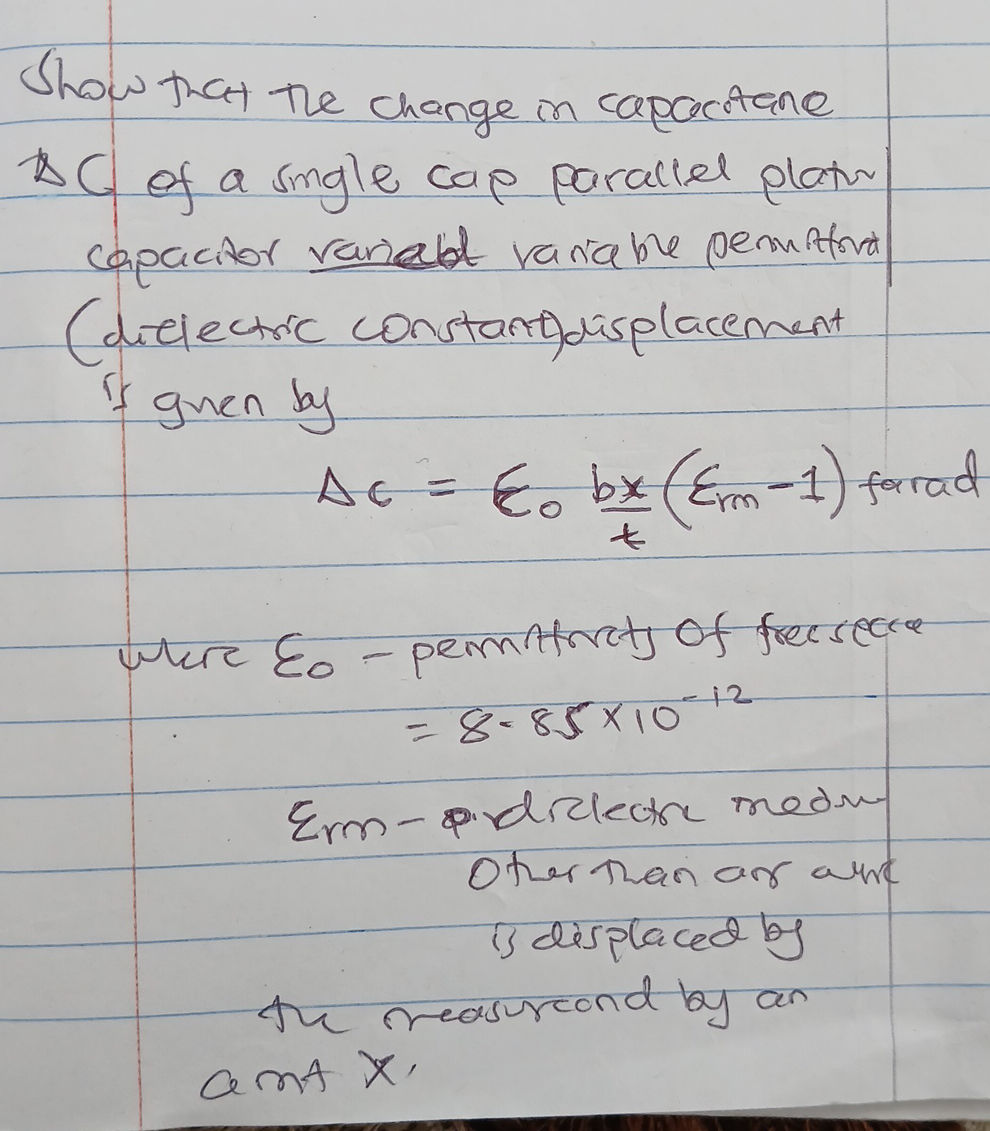 Show that the change in capacitane
ΔC of a single cap parallel plate
capacitor variabl variable permittivit
(dielectric constant) displacement
is given by
ΔC = ε₀ bx/t (εrm - 1) farad
where ε₀ - permittivity of free space
= 8.85 × 10⁻¹²
εrm - dielectric medium
other than air
is displaced by
the measurand by an
amt x.